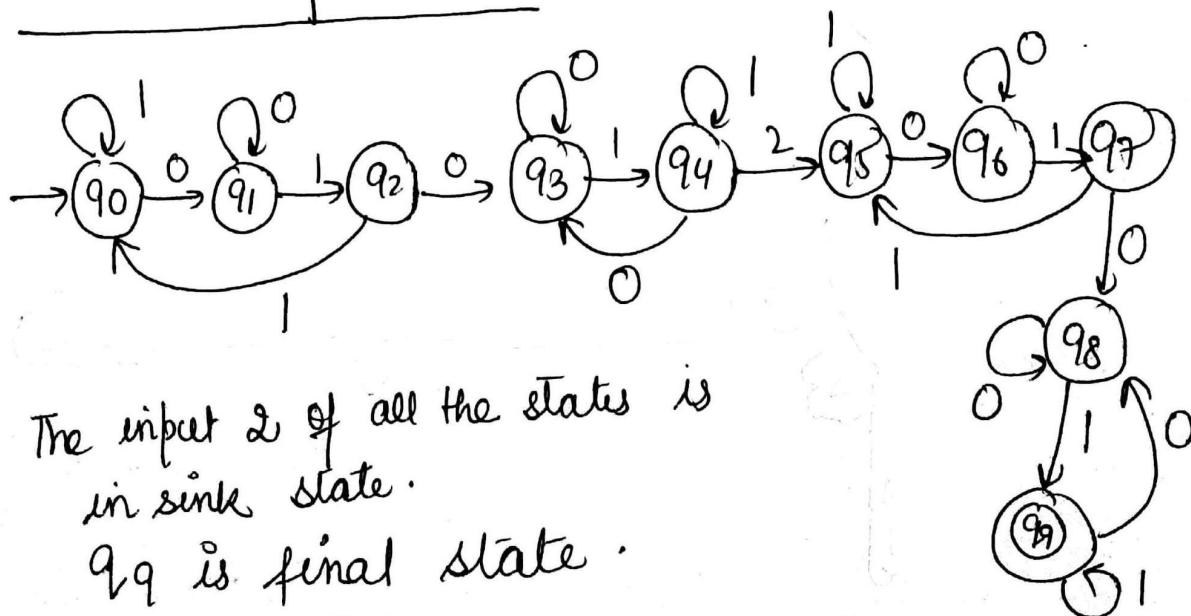 1 0 0 1 1 0
q0 0 q1 1 q2 0 q3 1 q4 2 q5 0 q6 1 q7
1 0 1 0
q8
0 1 0
q9
1
The input 2 of all the states is
in sink state.
q9 is final state.